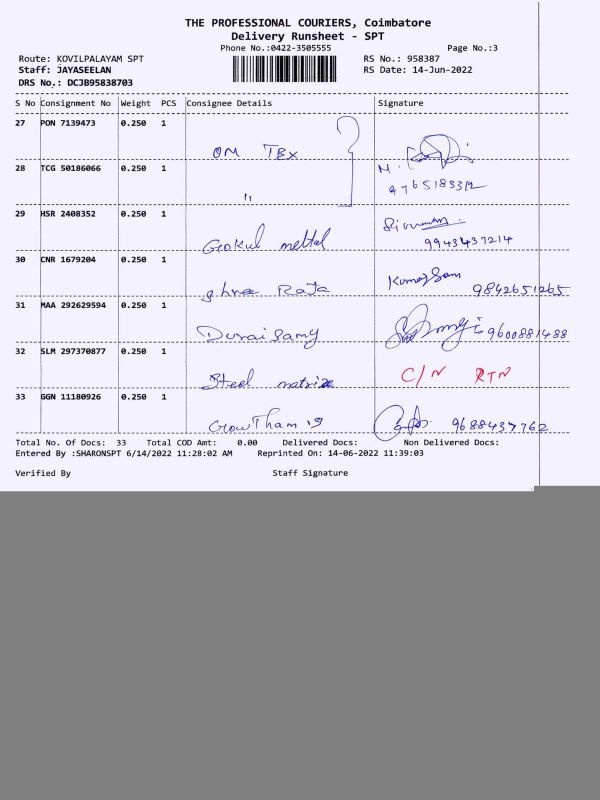 THE PROFESSIONAL COURIERS, Coimbatore
Delivery Runsheet - SPT
Phone No.:0422-3505555 Page No.:3
Route: KOVILPALAYAM SPT RS No.: 958387
Staff: JAYASEELAN RS Date: 14-Jun-2022
DRS No.: DCJB95838703
S No Consignment No Weight PCS Consignee Details Signature
27 PON 7139473 0.250 1 OM TEX
28 TCG 50186066 0.250 1 " 9765183312
29 HSR 2408352 0.250 1 Gokul mettal 9943437214
30 CNR 1679204 0.250 1 shree Raja 9842651265
31 MAA 292629594 0.250 1 Duraisamy 9600881488
32 SLM 297370877 0.250 1 Steel C/N RTN
33 GGN 11180926 0.250 1 GowTham 9688437762
Total No. Of Docs: 33 Total COD Amt: 0.00 Delivered Docs: Non Delivered Docs:
Entered By :SHARONSPT 6/14/2022 11:28:02 AM Reprinted On: 14-06-2022 11:39:03
Verified By Staff Signature